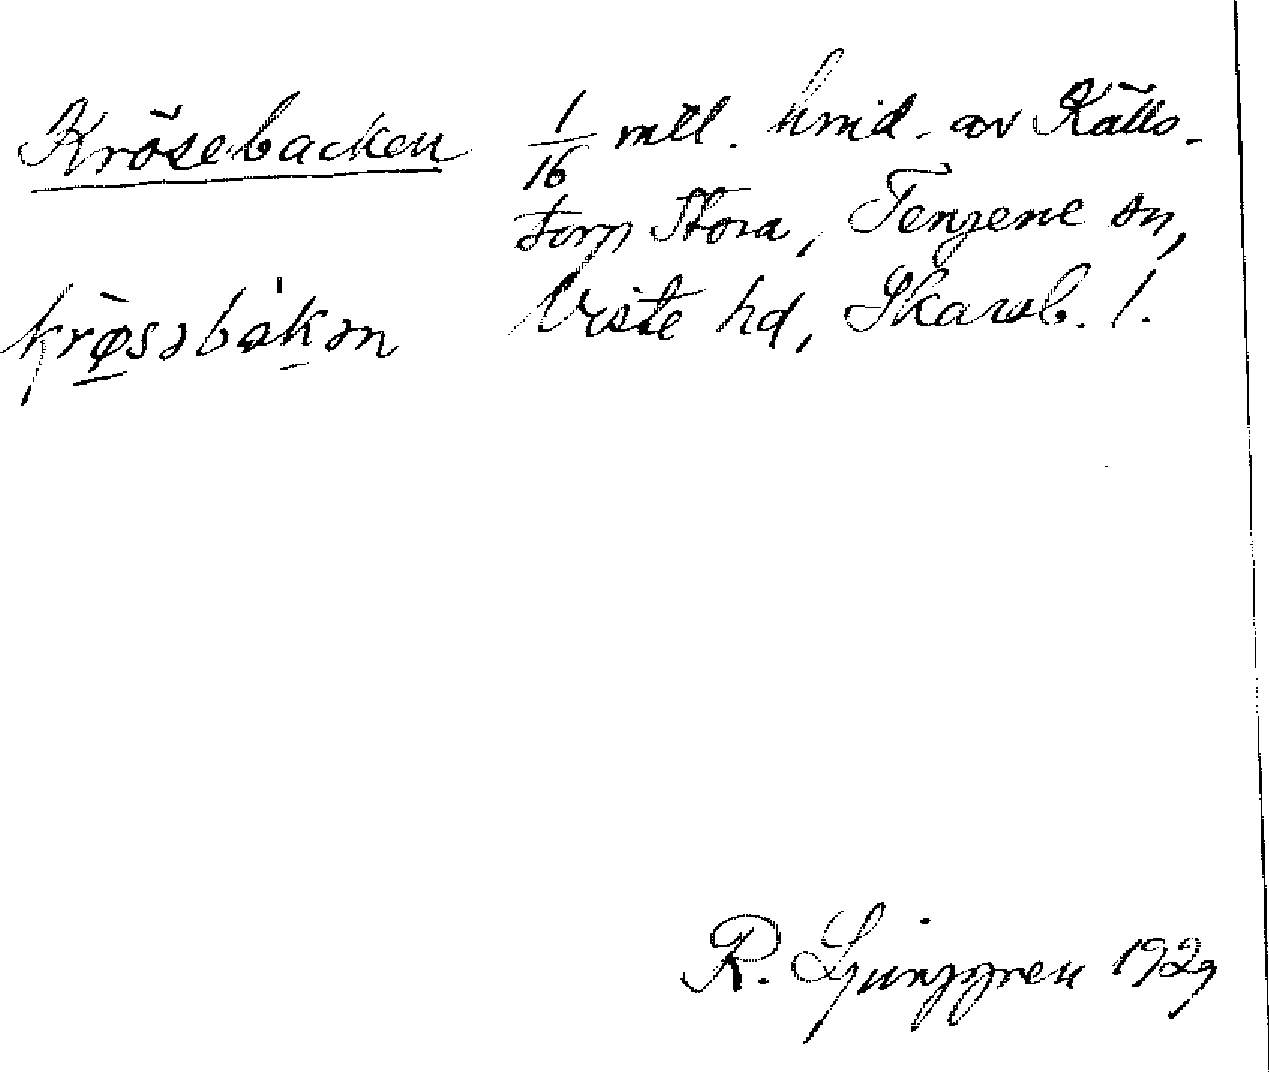 Krösebacken
krøsəbàkən
1/16 mtl. hmd. av Källs-
torp Stora, Tengene sn,
Viste hd, Skarab. l.
R. Ljunggren 1929